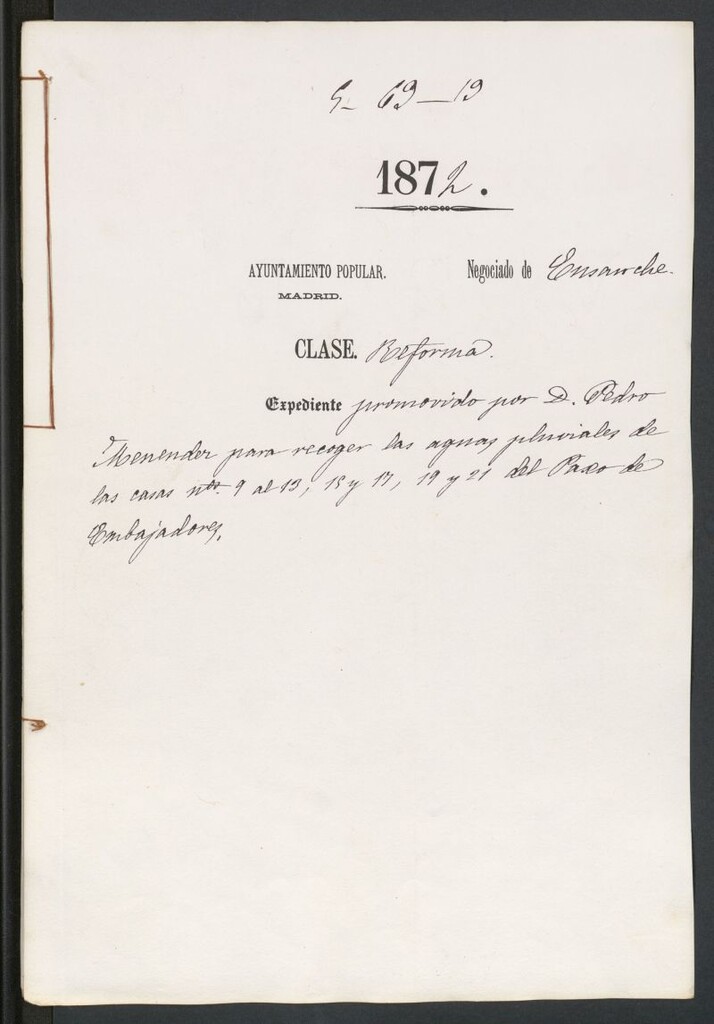 5- 69-19
1872.
AYUNTAMIENTO POPULAR. Negociado de Ensanche.
MADRID.
CLASE. Reforma.
Expediente promovido por D. Pedro
Menendez para recoger las aguas pluviales de
las casas nos. 9 al 13, 15 y 17, 19 y 21 del Paseo de
Embajadores.